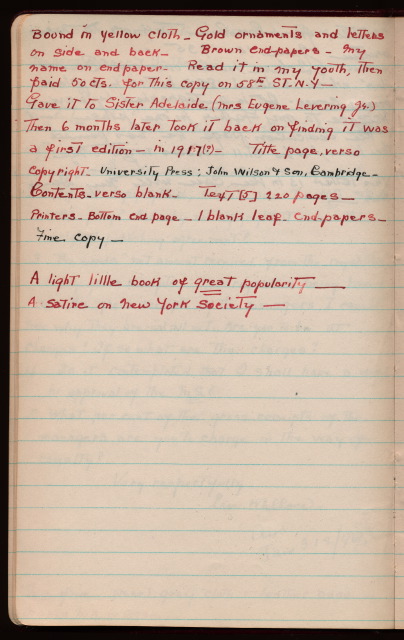 Bound in yellow cloth - Gold ornaments and letters
on side and back - Brown end-papers - my
name on end paper - Read it in my youth, then
paid 50 cts. for this copy on 58th ST. N.Y -
Gave it to Sister Adelaide. (Mrs Eugene Levering Jr.)
Then 6 months later Took it back on finding it was
a first edition - in 1917(?) - Title page, verso
Copyright - University Press: John Wilson & Son, Cambridge -
Contents - verso blank - Text [5] 220 pages -
Printers - Bottom end page - 1 blank leaf - end-papers -
Fine copy -
A light little book of great popularity -
A satire on New York Society -